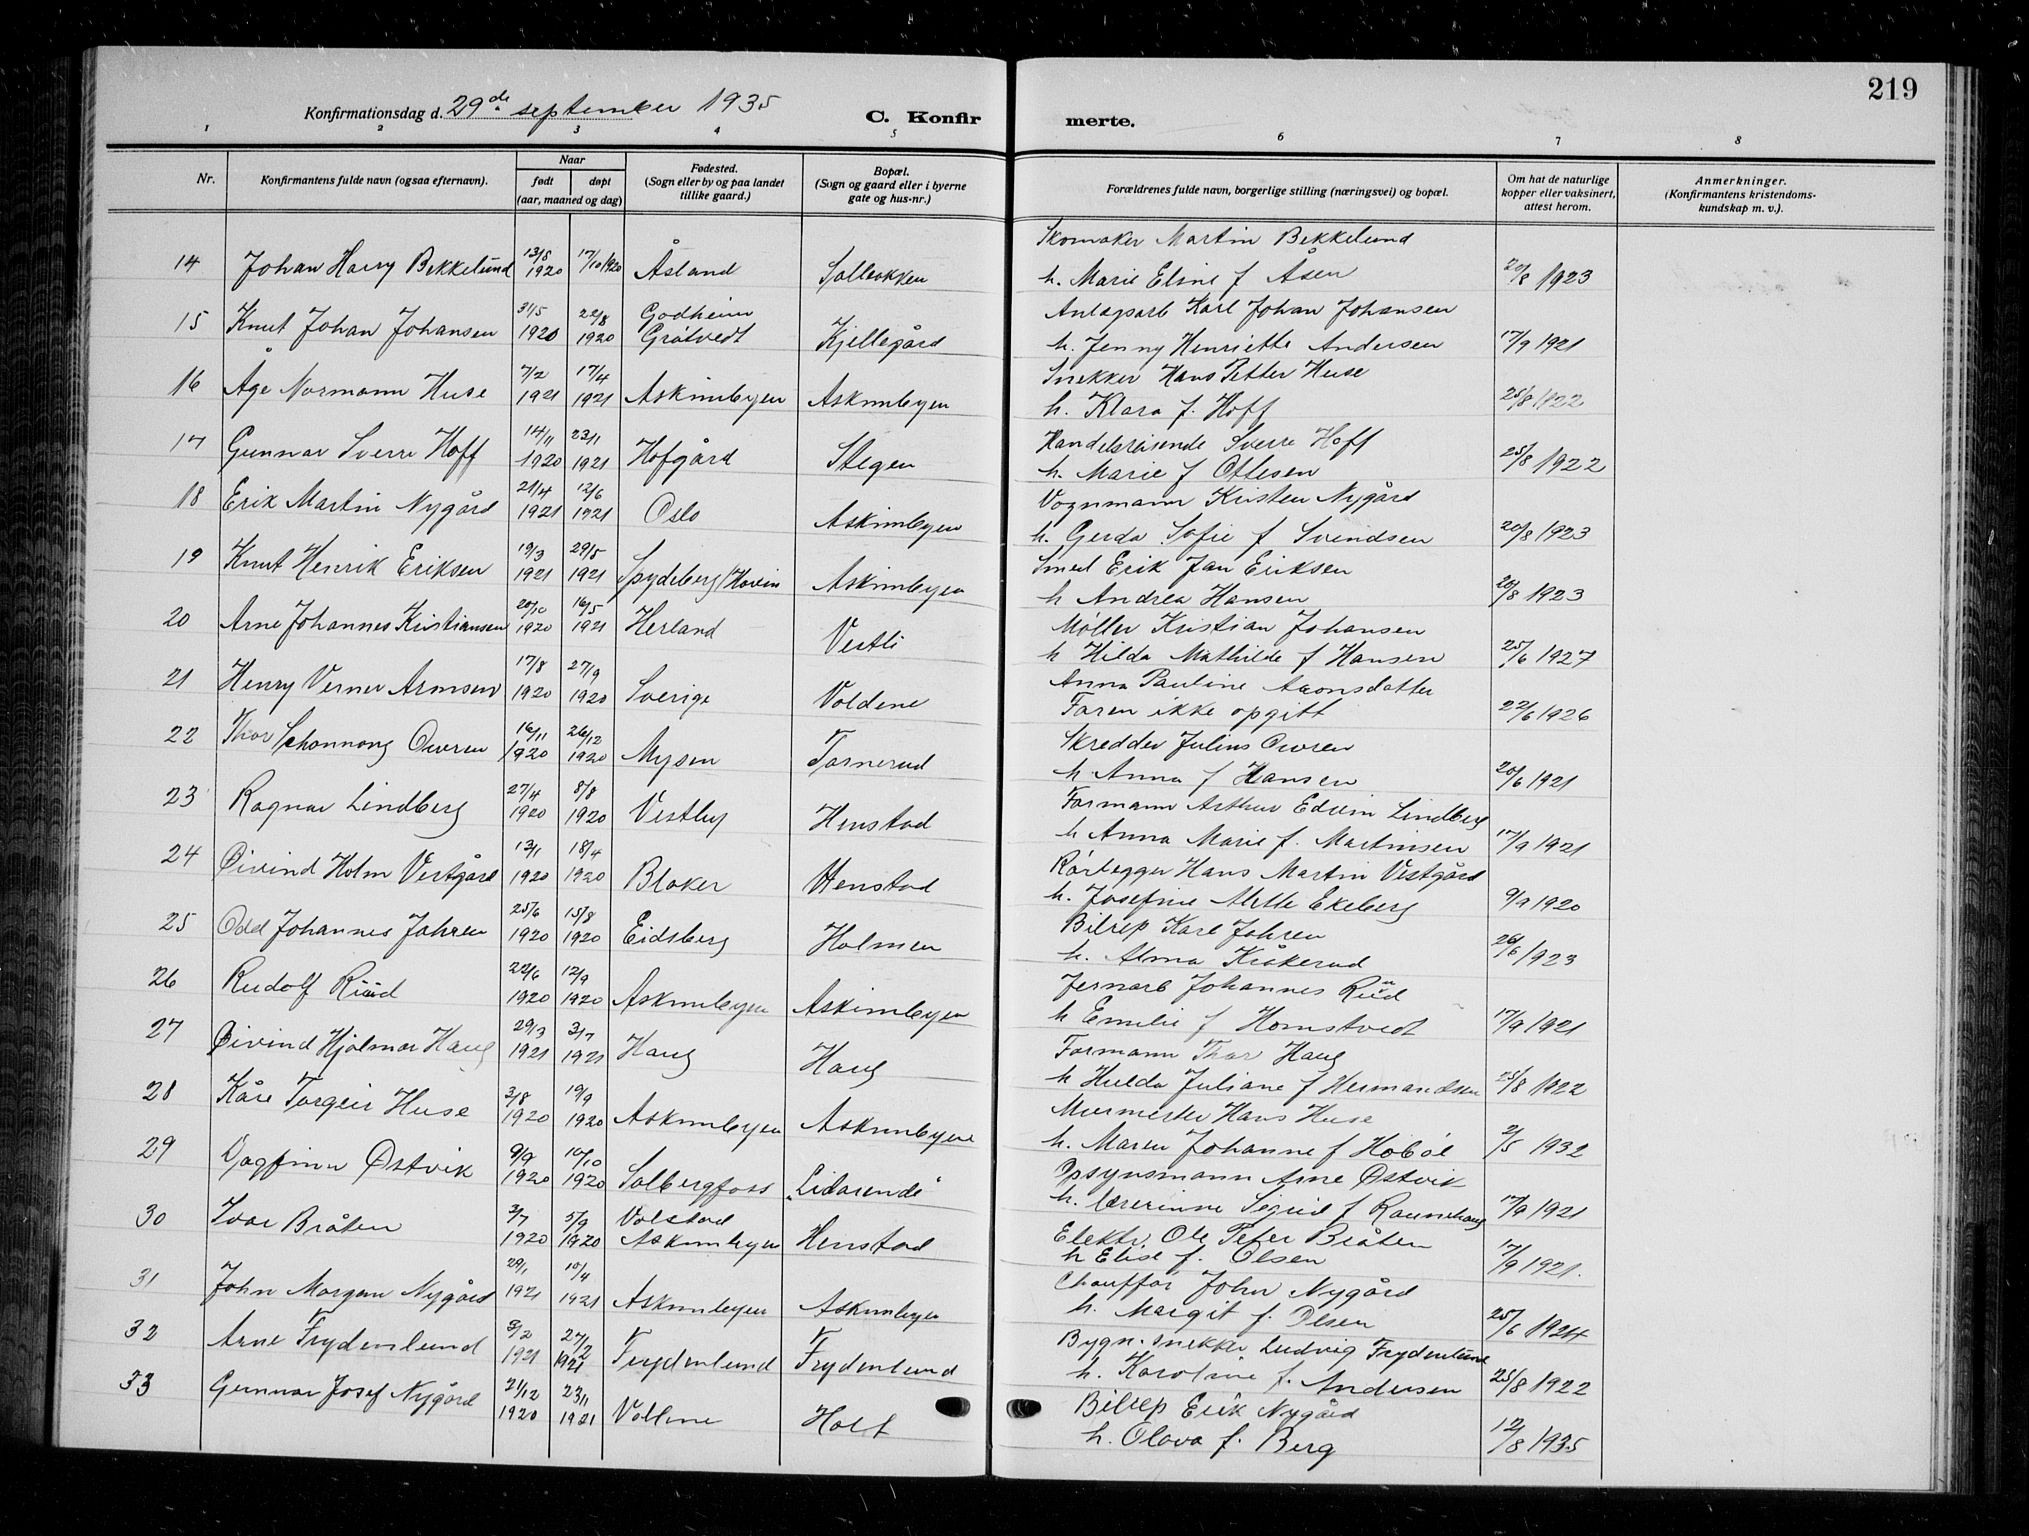 219
Konfirmationsdag d. 29de september 1935
C. Konfir
merte.
1 2 3 4 5 6 7 8
Nr.
Konfirmantens fulde navn (ogsaa efternavn).
Naar
født døpt
(aar, maaned og dag)
Fødested.
(Sogn eller by og paa landet
tillike gaard.)
Bopæl.
(Sogn og gaard eller i byerne
gate og hus-nr.)
Forældrenes fulde navn, borgerlige stilling (næringsvei) og bopæl.
Om hat de naturlige
kopper eller vaksinert,
attest herom.
Anmerkninger.
(Konfirmantens kristendoms-
kundskap m. v.).
Skomaker Martin Bekkelund
14 Johan Harry Bekkelund 13/5 1920 17/10 1920 Åsland h. Marie Eline f Åsen 20/8 1923
Anlagsarb Karl Johan Johansen
15 Knut Johan Johansen 31/5 1920 22/8 1920 Godheim Grøtvedt Kjellegård h. Jenny Henriette Andersen 17/9 1921
Snekker Hans Petter Huse
16 Åge Normann Huse 7/2 1921 17/4 1921 Askimbyen Askimbyen h. Klara f. Hoff 25/8 1922
Handelsreisende Sverre Hoff
17 Gunnar Sverre Hoff 14/11 1920 23/1 1921 Hofgård Stegen h. Marie f Ottesen 25/8 1922
Vognmann Kristen Nygård
18 Erik Martin Nygård 21/4 1921 12/6 1921 Oslo Askimbyen h. Gerda Sofie f Svendsen 20/8 1923
Smed Erik Jan Eriksen
19 Knut Henrik Eriksen 19/3 1921 29/5 1921 Spydeberg/Hovin Askimbyen h Andrea Hansen 20/8 1923
Møller Kristian Johansen
20 Arne Johannes Kristiansen 20/10 1920 16/5 1921 Herland Vestli h Hilda Mathilde f Hansen 25/6 1927
Anna Pauline Aronsdatter
21 Henry Verner Armsen 17/8 1920 27/9 1920 Sverige Voldene Faren ikke opgitt 22/6 1926
Skredder Julius Owren
22 Thor Schonnong Owren 16/11 1920 26/12 1920 Mysen Tornerud h Anna f Hansen 20/6 1921
Formann Arthur Edvin Lindberg
23 Ragnar Lindberg 27/4 1920 8/8 1920 Vestby Henstad h Anna Marie f. Martinsen 17/9 1921
Rørlegger Hans Martin Vestgård
24 Øivind Holm Vestgård 13/1 1920 18/4 1920 Blaker Henstad h. Josefine Alette Ekeberg 9/9 1920
Bilrep Karl Jahren
25 Odd Johannes Jahren 25/6 1920 15/8 1920 Eidsberg Holmen h. Alma Kråkerud 26/6 1923
Jernarb Johannes Ruud
26 Rudolf Ruud 22/6 1920 12/9 1920 Askimbyen Askimbyen h Emilie f Homstvedt 17/9 1921
Formann Thor Haug
27 Øivind Hjalmar Haug 29/3 1921 3/7 1921 Haug Haug h Hulda Juliane f Hermandsen 25/8 1922
Murmester Hans Huse
28 Kåre Torgeir Huse 3/8 1920 19/9 1920 Askimbyen Askimbyen h. Maren Johanne f Hobøl 2/5 1932
Opsynsmann Arne Østvik
29 Dagfinn Østvik 9/9 1920 10/10 1920 Solbergfoss "Lidarende" h. lærerinne Sigrid f Raunehaug 17/9 1921
Elektr. Ole Peter Bråten
30 Ivar Bråten 3/7 1920 5/9 1920 Volstad Askimbyen Henstad h Elise f. Olsen 17/9 1921.
Chauffør John Nygård
31 John Morgan Nygård 29/1 1921 10/4 1921 Askimbyen Askimbyen h. Margit f. Olsen 25/6 1924
Bygn. snekker Ludvig Frydenlund
32 Arne Frydenlund 3/2 1921 27/2 1921 Frydenlund Frydenlund h. Karoline f. Andersen 25/8 1922
Bilrep Erik Nygård
33 Gunnar Josef Nygård 21/12 1920 23/1 1921 Vollene Holt h. Olava f. Berg 12/8 1935